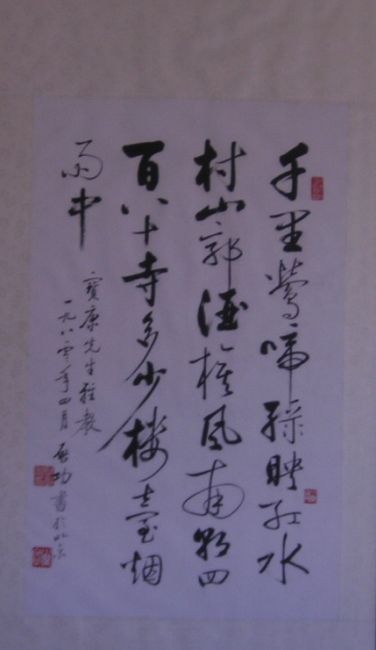 千里鶯啼綠映紅水
村山郭酒旗風南朝四
百八十寺多少楼臺烟
雨中
寶康先生雅教
一九八零年四月 启功書於北京